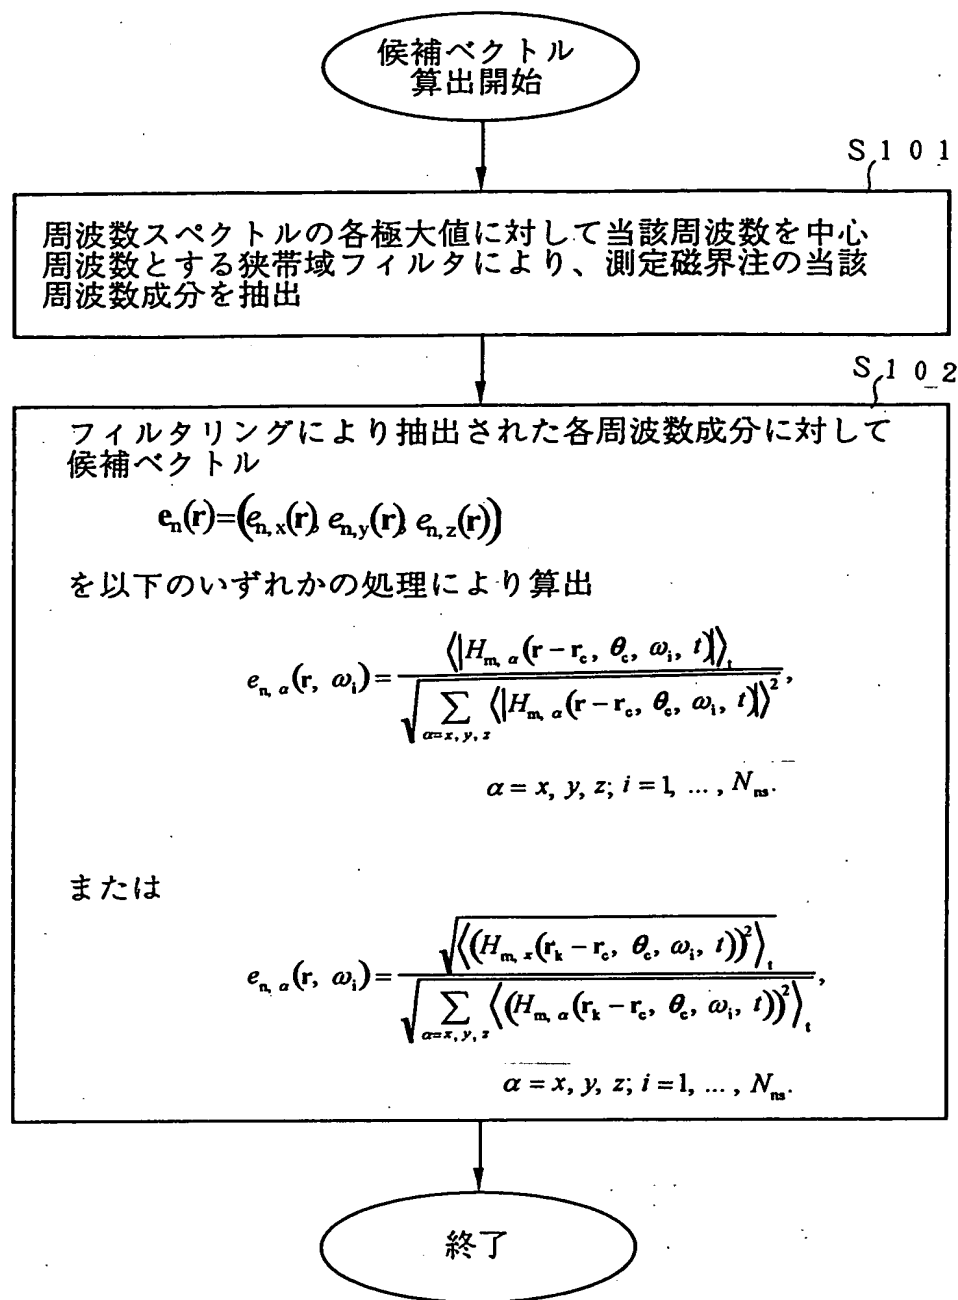 候補ベクトル
算出開始
S101
周波数スペクトルの各極大値に対して当該周波数を中心
周波数とする狭帯域フィルタにより、測定磁界注の当該
周波数成分を抽出
S102
フィルタリングにより抽出された各周波数成分に対して
候補ベクトル
e_n(r)=(e_{n,x}(r), e_{n,y}(r), e_{n,z}(r))
を以下のいずれかの処理により算出
e_{n, α}(r, ω_i)=\frac{⟨|H_{m, α}(r−r_c, θ_c, ω_i, t)|⟩_t}{\sqrt{\sum_{α=x, y, z}⟨|H_{m, α}(r−r_c, θ_c, ω_i, t)|⟩^2}},
α=x, y, z; i=1, ..., N_{ns}.
または
e_{n, α}(r, ω_i)=\frac{\sqrt{⟨(H_{m, x}(r_k−r_c, θ_c, ω_i, t))^2⟩_t}}{\sqrt{\sum_{α=x, y, z}⟨(H_{m, α}(r_k−r_c, θ_c, ω_i, t))^2⟩_t}},
α=x, y, z; i=1, ..., N_{ns}.
終了